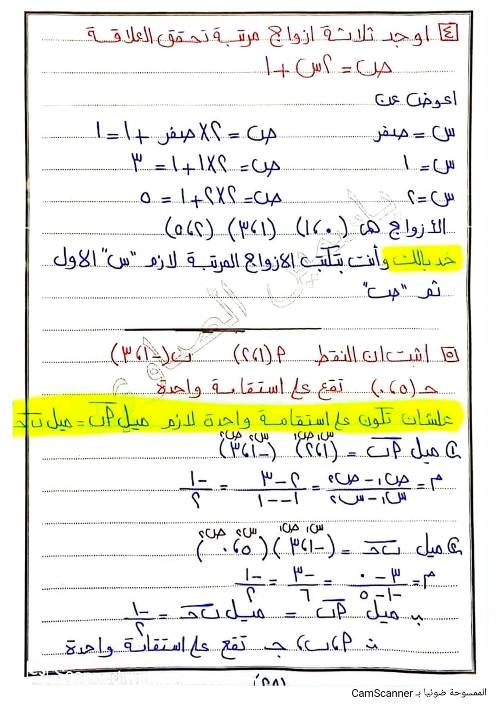 ٤ اوجد ثلاثة ازواج مرتبة تحقق العلاقة
ص = ٢س + ١
اعوض عن
س = صفر ص = ٢ × صفر + ١ = ١
س = ١ ص = ٢×١+١ = ٣
س = ٢ ص = ٢×٢+١ = ٥
الأزواج هى (٠،١) (١،٣) (٢،٥)
خد بالك وأنت بتكتب الازواج المرتبة لازم "س" الاول
ثم "ص"
٥ اثبت ان النقط P(١،٢) ب(-١،٣)
حـ(٥،٠) تقع على استقامة واحدة
علشان تكون على استقامة واحدة لازم ميل Pب = ميل بحـ
ميل Pب = (١،٢) (-١،٣)
س١ ص١ س٢ ص٢
م = ص١ - ص٢ / س١ - س٢ = ٢ - ٣ / ١ - -١ = -١ / ٢
ميل بحـ = (-١،٣) (٥،٠)
س١ ص١ س٢ ص٢
م = ٣ - ٠ / -١ - ٥ = -٣ / ٦ = -١ / ٢
∵ ميل Pب = ميل بحـ = -١ / ٢
∴ P،ب،جـ تقع على استقامة واحدة
(٢٨)
الممسوحة ضوئيا بـ CamScanner